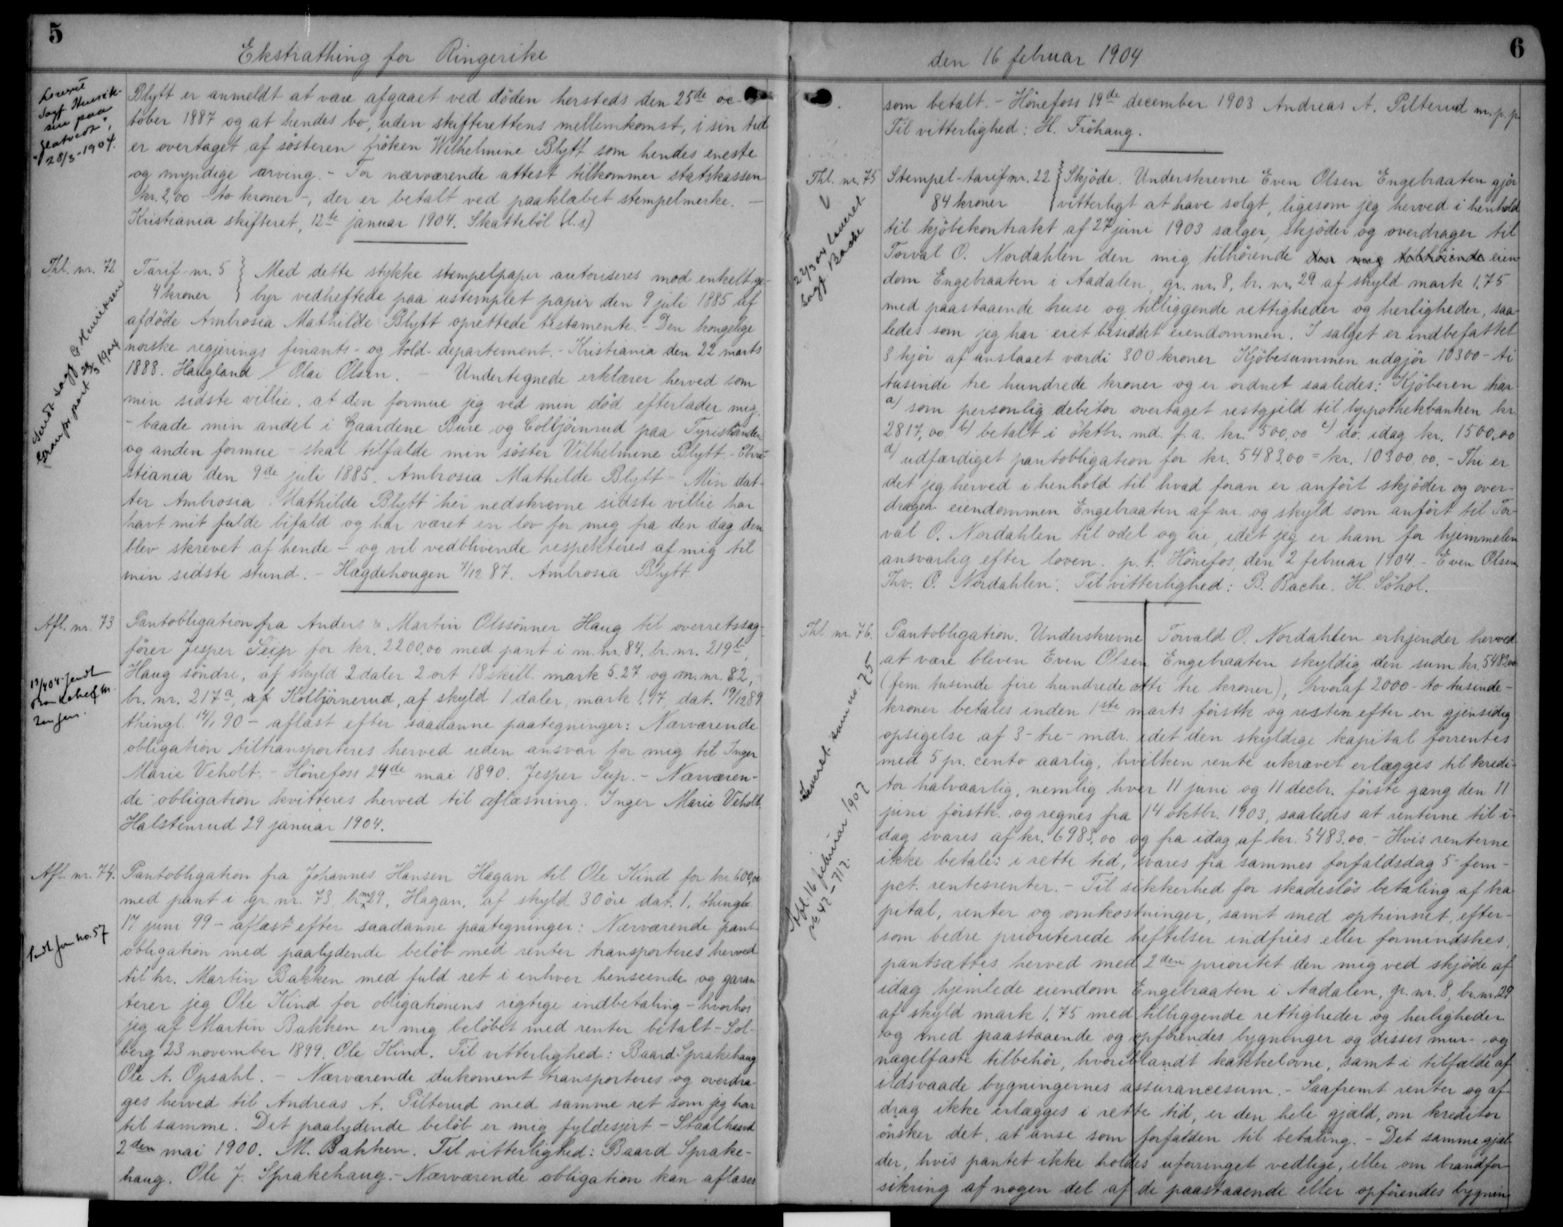 5
Ekstrathing for Ringerike
Blytt er anmeldt at være afgaaet ved døden hersteds den 25de oc-
tober 1887 og at hendes bo, uden skifterettens mellemkomst, i sin tid
er overtaget af søsteren frøken Wilhelmine Blytt som hendes eneste
og myndige arving. - For nærværende attest tilkommer statskassen
kr. 2,00 - to kroner -, der er betalt ved paaklæbet stempelmerke. -
Kristiania skifteret, 12te januar 1904. Skattebøl (l.s)
28/3-1904.
Thl. nr. 72
Tarif nr. 5 } Med dette stykke stempelpapir autoriseres mod enkelt ge-
4 kroner } byr vedheftede paa ustemplet papir den 9 juli 1885 af
afdøde Ambrosia Mathilde Blytt oprettede testamente. Den kongelige
norske regjerings finants- og told-departement. - Kristiania den 22 marts
1888. Haugland / Olai Olsen. - Undertegnede erklærer herved som
min sidste villie, at den formue jeg ved min død efterlader mig,
- baade min andel i Gaardene Bure og Colbjørnrud paa Tyristranden
og anden formue - skal tilfalde min søster Vilhelmine Blytt. - Chri-
stiania den 9de juli 1885. Ambrosia Mathilde Blytt - Min dat-
ter Ambrosia Mathilde Blytt her nedskrevne sidste villie har
havt mit fulde bifald og har været en lov for mig fra den dag den
blev skrevet af hende - og vil vedblivende respekteres af mig til
min sidste stund. - Hægdehougen 7/12 87. Ambrosia Blytt
Afl. nr. 73
Pantobligation fra Anders & Martin Olssønner Haug til overretssag-
fører Jesper Seip for kr. 2200,00 med pant i m. nr. 84, br. nr. 219b,
Haug søndre, af skyld 2 daler 2 ort 18 skill. mark 5.27 og m. nr. 82,
br. nr. 217a, af Kolbjørnerud, af skyld 1 daler, mark 1,97, dat. 19/12 89
thingl. 14/1 90 - aflæst efter saadanne paategninger: Nærværende
obligation tiltransporteres herved uden ansvar for mig til Inger
Marie Veholt. - Hønefoss 24de mai 1890. Jesper Seip. - Nærværen-
de obligation kvitteres herved til aflæsning. Inger Marie Veholt.
Halstenrud 29 januar 1904.
Afl. nr. 74.
Pantobligation fra Johannes Hansen Hagan til Ole Kind for kr. 600,00
med pant i gr. nr. 73, br. nr. 29, Hagan, af skyld 30 øre dat. 1, thingl.
17 juni 99 - aflæst efter saadanne paategninger: Nærværende pant-
obligation med paalydende beløb med renter transporteres herved
til hr. Martin Bakken med fuld ret i enhver henseende og garan
terer jeg Ole Kind for obligationens rigtige indbetaling - hvorhos
jeg af Martin Bakken er mig beløbet med renter betalt - Sol-
berg 23 november 1899. Ole Kind. Til vitterlighed: Baard Sprakehaug
Ole A. Opsahl. - Nærværende dukoment transporteres og overdra-
ges herved til Andreas A. Pilterud med samme ret som jeg har
til samme. Det paalydende beløb er mig fyldesgjørt -
2den mai 1900. M. Bakken. Til vitterlighed: Baard Sprake-
haug. Ole J. Sprakehaug. - Nærværende obligation kan aflæses
6
den 16 februar 1904
som betalt. - Hönefoss 19de december 1903 Andreas A. Pilterud m. p. p
Til vitterlighed: H. Fröhaug.
Thl. nr. 75
Stempel-tarif nr. 22 } Skjöde. Underskrevne Even Olsen Engebraaten gjör
84 kroner } vitterligt at have solgt, ligesom jeg herved i henhold
til kjöbekontrakt af 27 juni 1903 sælger, skjöder og overdrager til
Torval O. Nordahlen den mig tilhörende den mig tilhörende eien
dom Engebraaten i Aadalen, gr. nr. 8, br. nr. 29 af skyld mark 1,75
med paastaaende huse og tilliggende rettigheder og herligheder, saa
ledes som jeg har eiet besiddet eiendommen. I salget er indbefattet
3 kjör af anslaaet værdi 300 kroner Kjöbesummen udgjör 10300 - ti
tusinde tre hundrede kroner og er ordnet saaledes: Kjöberen har
a) som personlig debitor overtaget restgjeld til hypothekbanken kr.
2817,00 b) betalt i oktbr. md. f. a. kr. 500,00 c) do. idag kr. 1500,00
d) udfærdiget pantobligation for kr. 5483,00 = kr. 10300,00. - Thi er
det jeg herved i henhold til hvad foran er anfört skjöder og over-
drager eiendommen Engebraaten af nr. og skyld som anfört til Tor-
val O. Nordahlen til odel og eie, idet jeg er ham for hjemmelen
ansvarlig efter loven. p. t. Hönefos, den 2 februar 1904. - Even Olsen
Thv. O. Nordahlen. Til vitterlighed: B. Bache. H. Söhol.
Thl. nr. 76.
Pantobligation. Underskrevne Torvald O. Nordahlen erkjender herved
at være bleven Even Olsen Engebraaten skyldig den sum kr. 5483,00
(fem tusinde fire hundrede otti tre kroner), hvoraf 2000 - to tusinde -
kroner betales inden 1ste marts förstk. og resten efter en gjensidig
opsigelse af 3 - tre - mdr. idet den skyldige kapital forrentes
med 5 pr. cento aarlig, hvilken rente ukrævet erlægges til kredi-
tor halvaarlig, nemlig hver 11 juni og 11 decbr. förste gang den 11
juni förstk. og regnes fra 14 oktbr. 1903, saaledes at renterne til i-
dag svares af kr. 6983,00 og fra idag af kr. 5483,00 - Hvis renterne
ikke betales i rette tid, svares fra sammes forfaldsdag 5 - fem -
pct. rentesrenter. - Til sikkerhed for skadeslös betaling af ka-
pital, renter og omkostninger, samt med optrinsret, efter-
som bedre prioriterede heftelser indfries eller formindskes,
pantsættes herved med 2den prioritet den mig ved skjöde af
idag hjemlede eiendom Engebraaten i Aadalen, gr. nr. 8, br. nr. 29
af skyld mark 1,75 med tilliggende rettigheder og herligheder
og med paastaaende og opförendes bygninger og disses mur- og
nagelfaste tilbehör, hvoriblandt kakkelovne, samt i tilfælde af
ildsvaade bygningernes assurancesum. - Saafremt renter og af-
drag ikke erlægges i rette tid, er den hele gjæld, om kreditor
önsker det, at anse som forfalden til betaling. - Det samme gjæl-
der, hvis pantet ikke holdes uforringet vedlige, eller om brandfor-
sikring af nogen del af de paastaaende eller opförendes bygnin